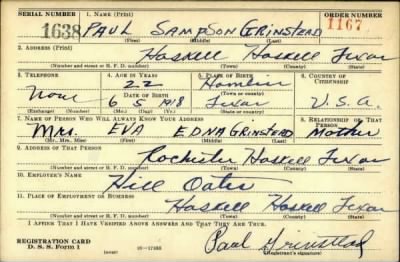 SERIAL NUMBER 1. NAME (Print) ORDER NUMBER
1638 PAUL SAMPSON GRINSTEAD 1167
(First) (Middle) (Last)
2. ADDRESS (Print)
Haskell Haskell Texas
(Number and street or R. F. D. number) (Town) (County) (State)
3. TELEPHONE 4. AGE IN YEARS 5. PLACE OF BIRTH 6. COUNTRY OF CITIZENSHIP
22 Hamlin
None DATE OF BIRTH (Town or county)
6 5 1918 Texas U.S.A.
(Exchange) (Number) (Mo.) (Day) (Yr.) (State or country)
7. NAME OF PERSON WHO WILL ALWAYS KNOW YOUR ADDRESS 8. RELATIONSHIP OF THAT PERSON
Mrs. EVA EDNA GRINSTEAD Mother
(Mr., Mrs., Miss) (First) (Middle) (Last)
9. ADDRESS OF THAT PERSON
Rochester Haskell Texas
(Number and street or R. F. D. number) (Town) (County) (State)
10. EMPLOYER'S NAME
Hill Oates
11. PLACE OF EMPLOYMENT OR BUSINESS
Haskell Haskell Texas
(Number and street or R. F. D. number) (Town) (County) (State)
I AFFIRM THAT I HAVE VERIFIED ABOVE ANSWERS AND THAT THEY ARE TRUE.
REGISTRATION CARD
D. S. S. Form 1
Paul Grinstead
(Registrant's signature)